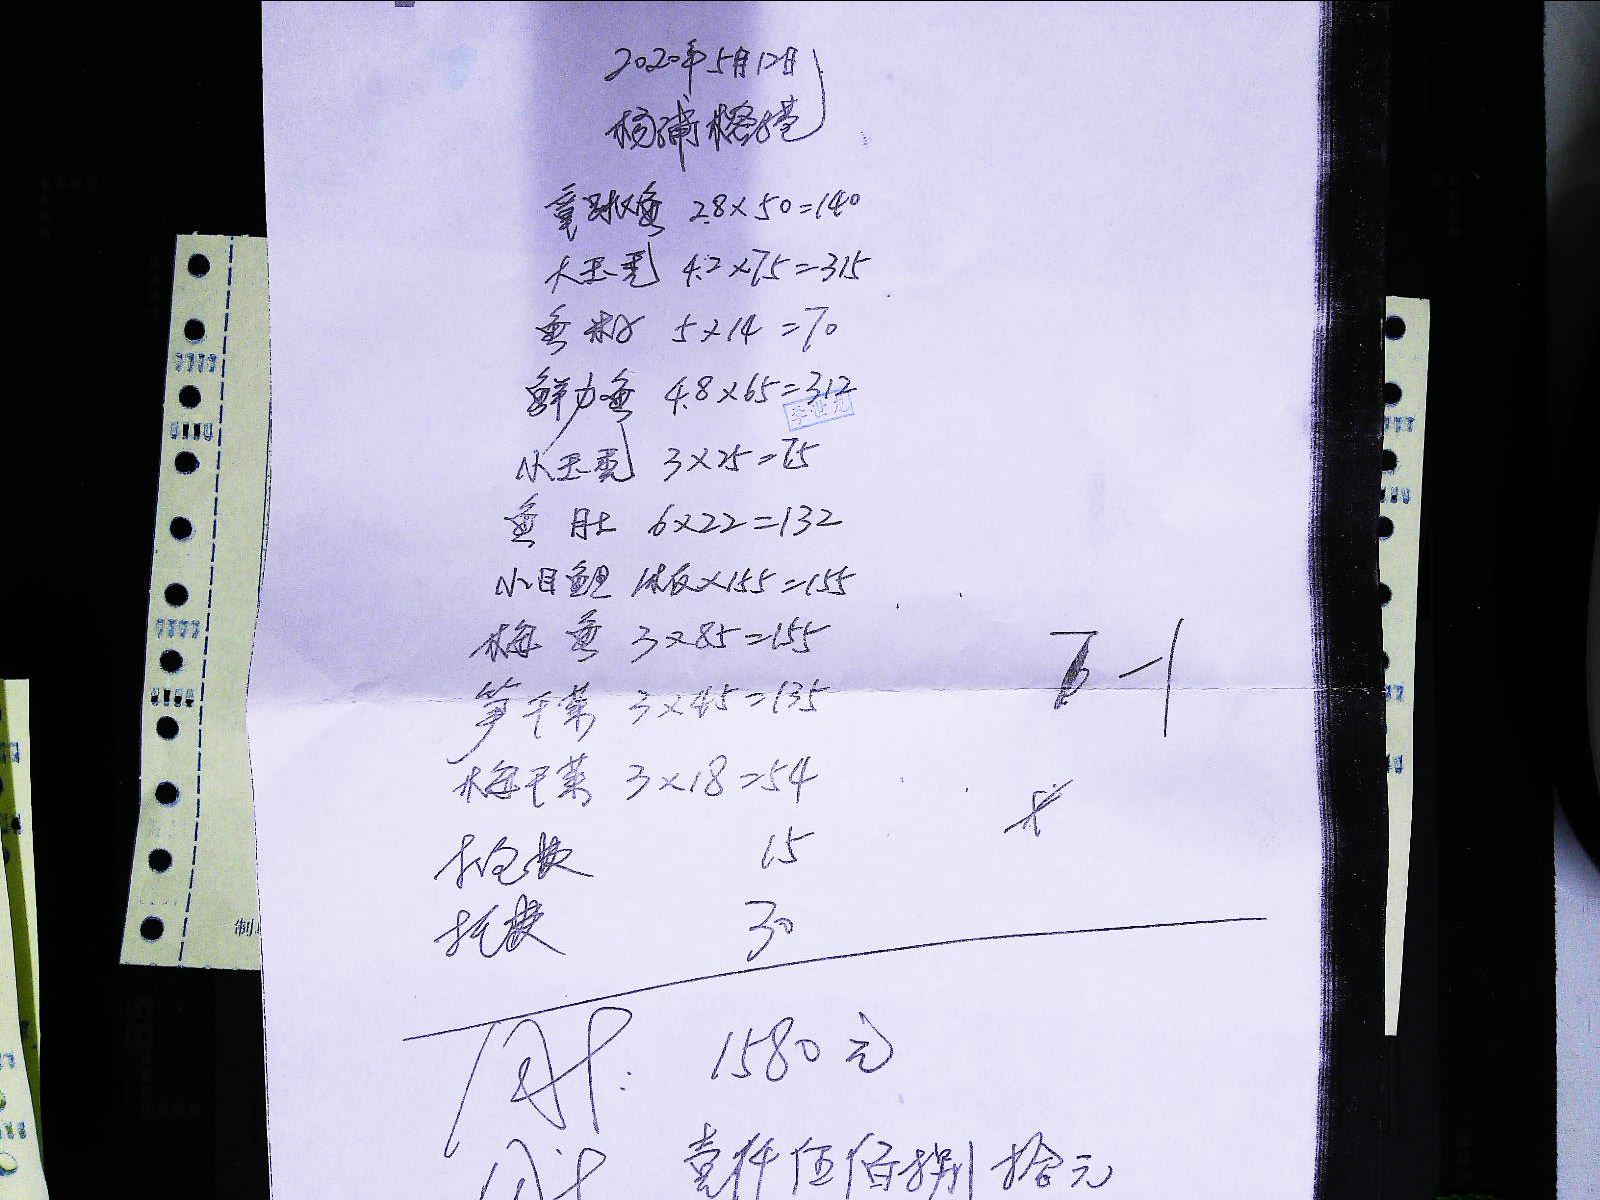 2020年5月12日
杨浦榕港
2.8×50=140
大玉秃 4.2×75=315
鱼籽 5×14=70
鲜力鱼 4.8×65=312
李世龙
小玉秃 3×25=75
鱼肚 6×22=132
小目鱼 1板×155=155
梅鱼 3×85=155
笋干菜 3×45=135
梅干菜 3×18=54
打包费 15
托费 30
1580元
壹仟伍佰捌拾元
制